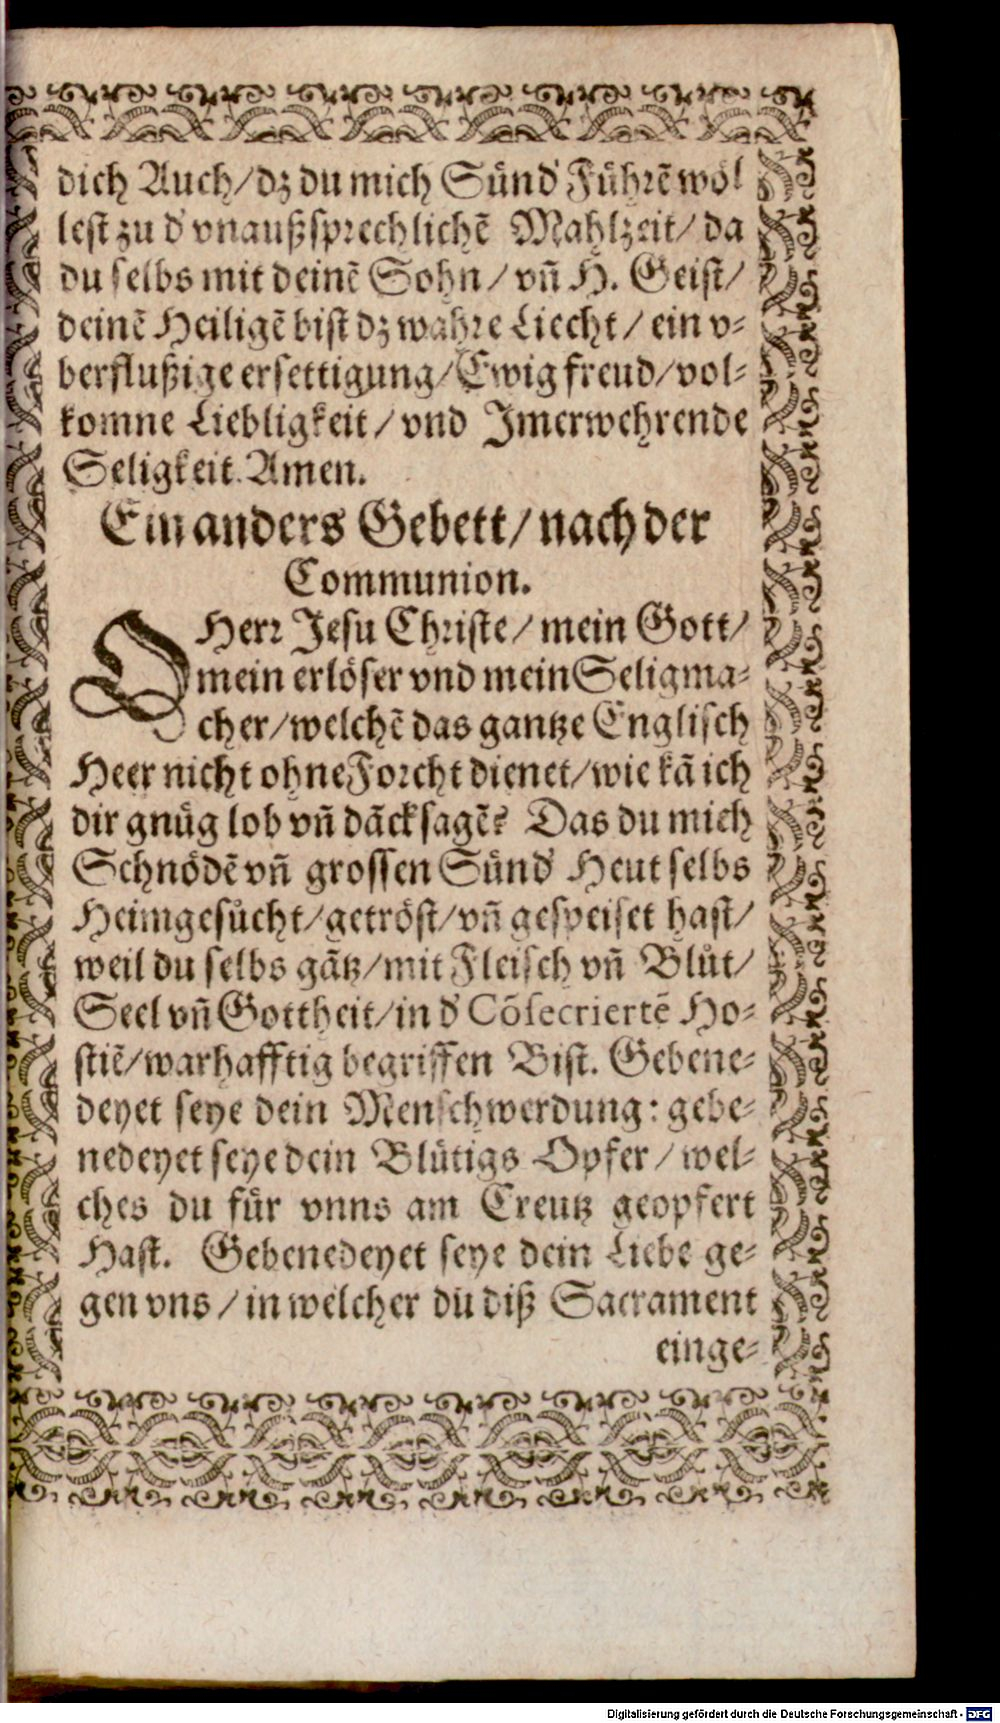 dich Auch/dz du mich Sünd' Führẽ wöl
lest zu d' vnaußsprechlichẽ Mahlzeit/da
du selbs mit deinẽ Sohn/vñ H. Geist/
deinẽ Heiligẽ bist dz wahre Liecht/ein v-
berflußige ersettigung/Ewig freud/vol-
komne Liebligkeit/vnd Jmerwehrende
Seligkeit. Amen.
Ein anders Gebett/nach der
Communion.
O Herr Jesu Christe/mein Gott/
mein erlöser vnd mein Seligma-
cher/welchẽ das gantze Englisch
Heer nicht ohne Forcht dienet/wie kã ich
dir gnůg lob vñ dãcksagẽ? Das du mich
Schnödẽ vñ grossen Sünd' Heut selbs
Heimgesůcht/getröst/vñ gespeiset hast/
weil du selbs gãtz/mit Fleisch vñ Blůt/
Seel vñ Gottheit/in d' Cõsecriertẽ Ho-
stiẽ/warhafftig begriffen Bist. Gebene-
deyet seye dein Menschwerdung: gebe-
nedeyet seye dein Blůtigs Opfer/wel-
ches du für vnns am Creutz geopfert
Hast. Gebenedeyet seye dein Liebe ge-
gen vns/in welcher du diß Sacrament
einge-
Digitalisierung gefördert durch die Deutsche Forschungsgemeinschaft - DFG